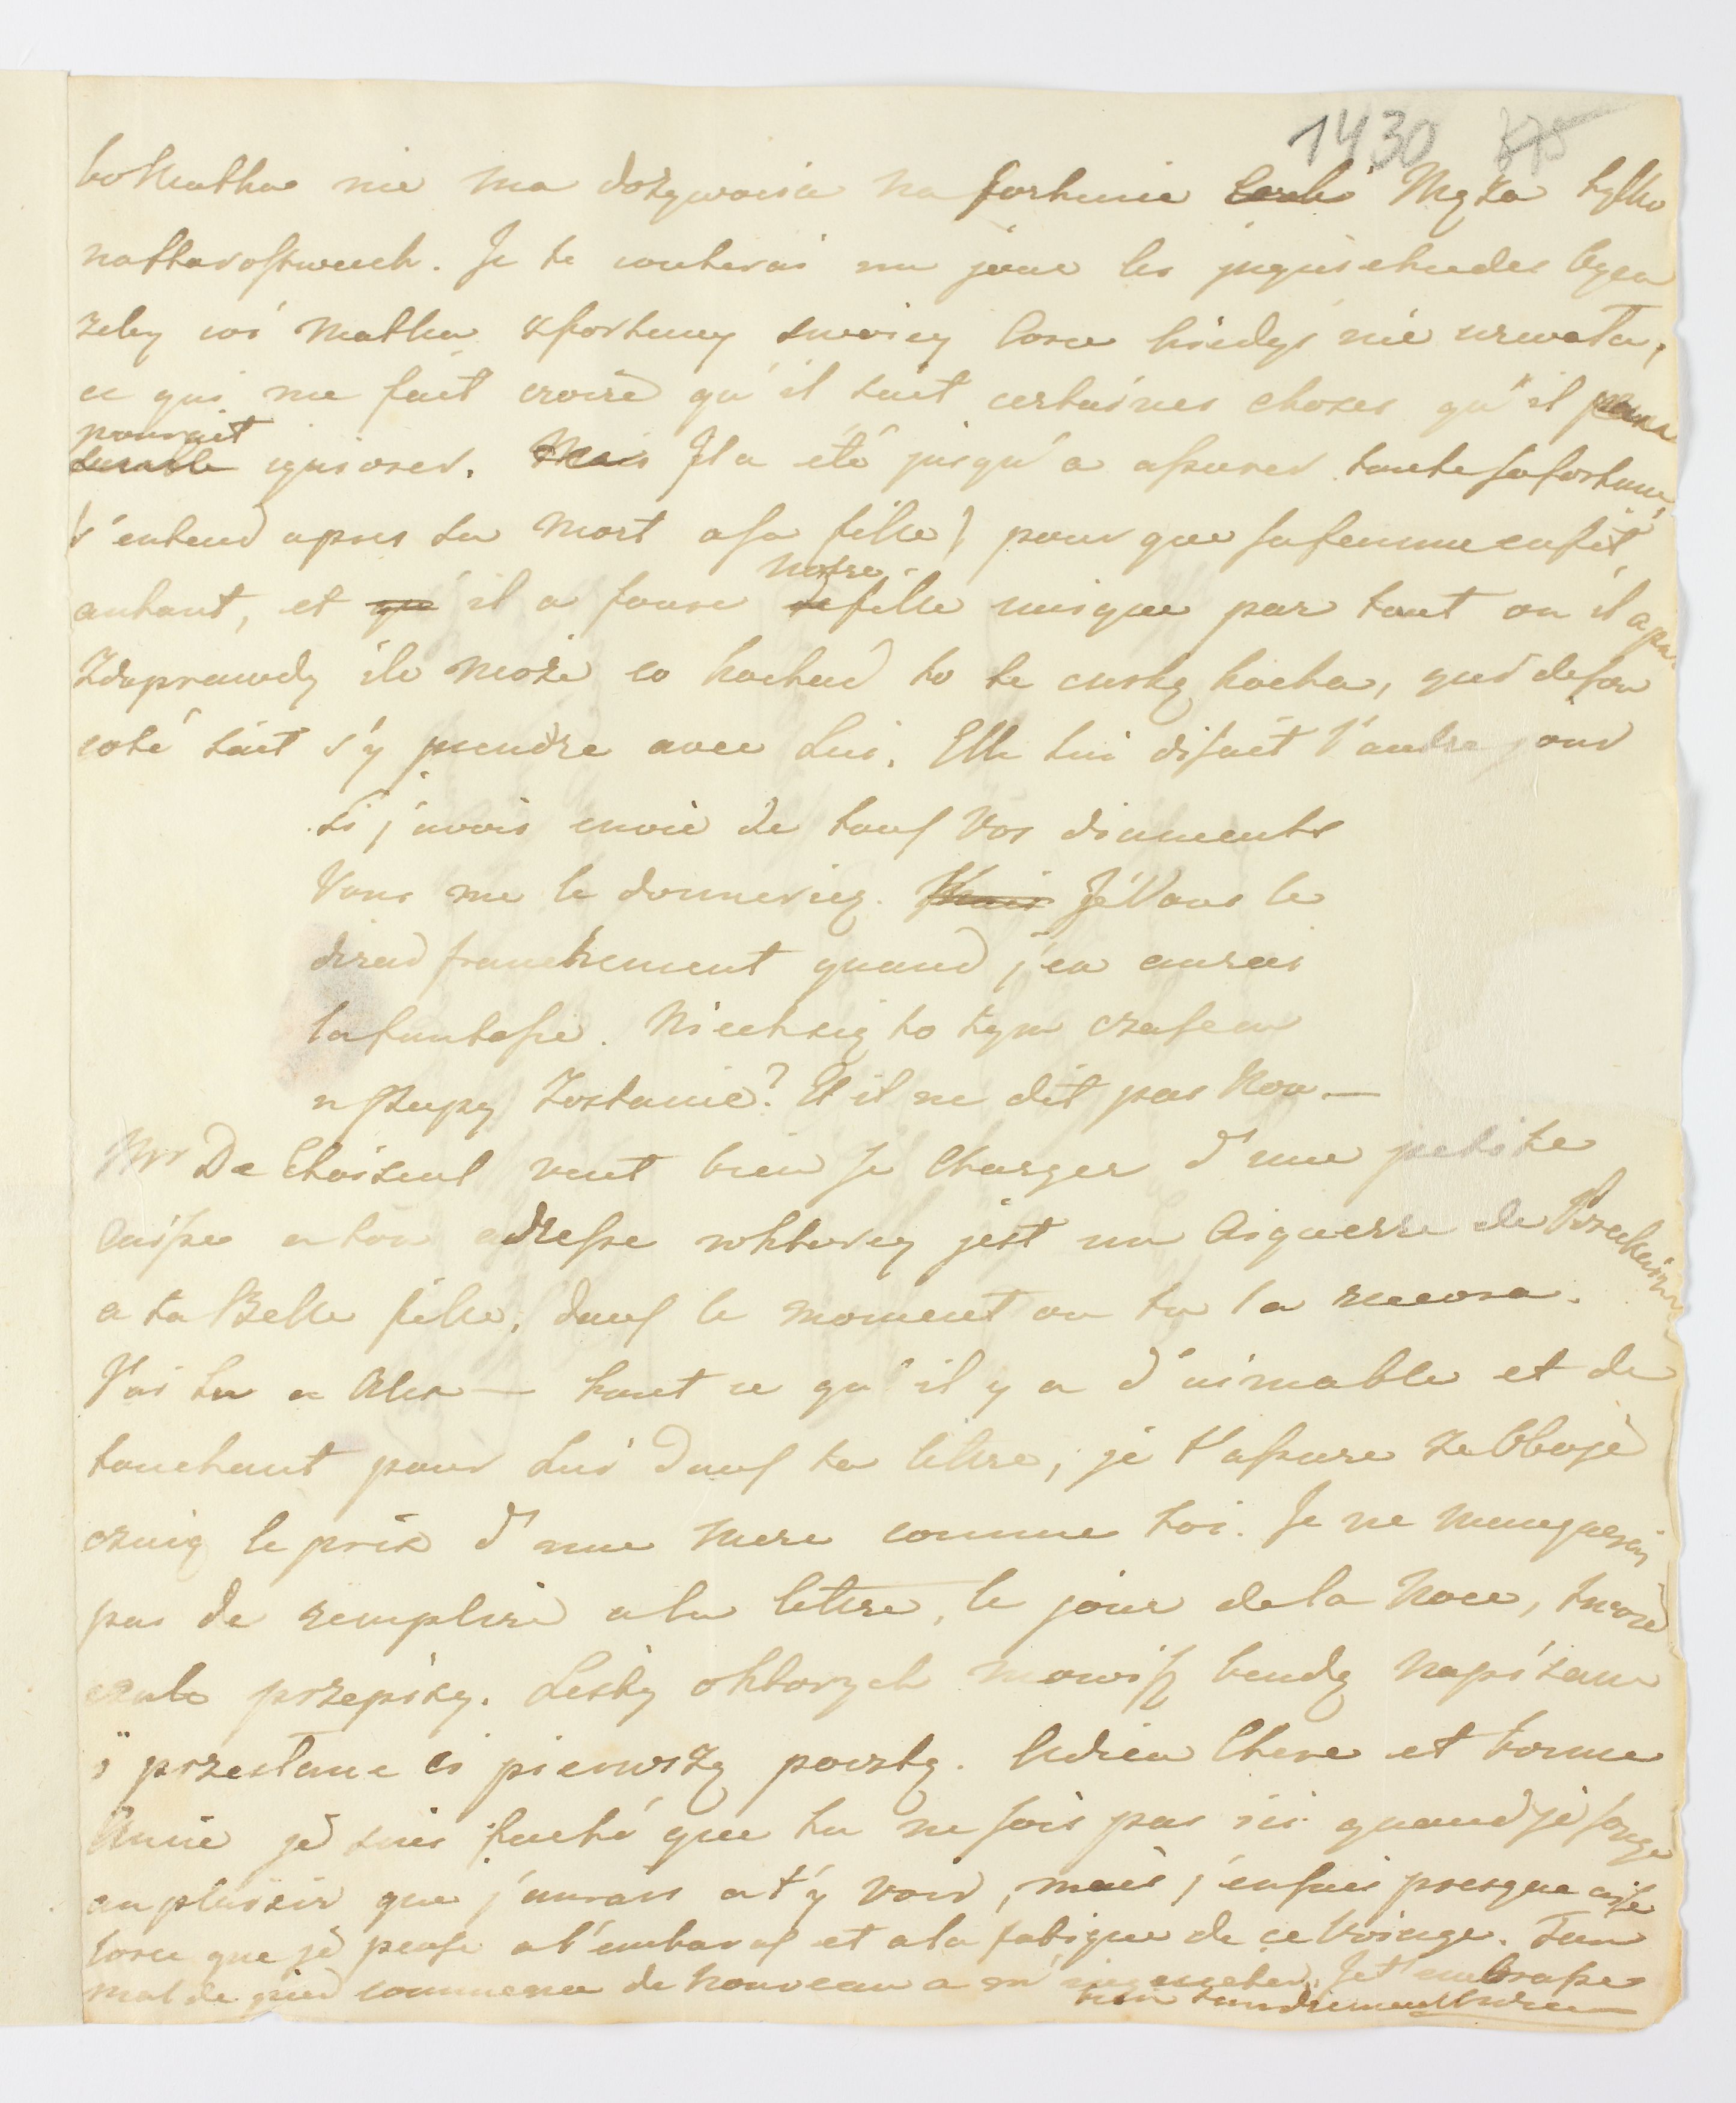 1430 375
bo Matka nie ma dozywocia na fortunie Corki Męza tylko
na Starostwach. Je te conterai un jour les inquietudes Oyca
zeby coś Matka z fortuny swoiey Corce kiedyś nie urwała,
ce qui me fait croire qu'il sait certaines choses qu'il
pourait
semble ignorer. Mais Il a été jusqu'a assurer toute sa fortune,
(s'entend apres sa Mort a sa fille) pour que sa femme en fit
notre
autant, et que il a foure sa fille unique par tout ou il a pu
Zdaprawdy ile może co kochać to te curkę kocha, qui de son
coté sait s'y prendre avec Lui. Elle lui disait l'autre jour
Si j'avois envie de tous Vos diamants
Vous me le donneriez. Mais Je Vous le
dirai franchement quand j'en aurai
la fantasie. Niech się to tym czasem
u Papy Zostanie? Et il ne dit pas Non —
Mr De Choiseul veut bien se Charger d'une petite
Caisse a ton adresse w ktorey jest un Aiguerre de
a ta Belle fille, dans le moment ou tu la recevra.
J'ai Lu a Alex — tout ce qu'il y a d'aimable et de
touchant pour Lui dans ta lettre, je t'assure ze Oboje
czuią le prix d'une Mere comme toi. Je ne
pas de remplire a la lettre, le jour de la Noce, twoie
czułe przepisy. Listy o ktorych mowisz bendą napisane
i przesłane ci pierwszą pocztą. Adieu Chere et bonne
Amie je suis faché que tu ne sois pas ici quand je songe
au plaisir que j'aurais a t'y voir, mais j'en suis presque aise
lorse que je pense a l'embaras et a la fatigue de ce Voiage. Ton
mal de pied commence de nouveau a m'inquieter. Je t'embrasse
bien tendrement Adieu